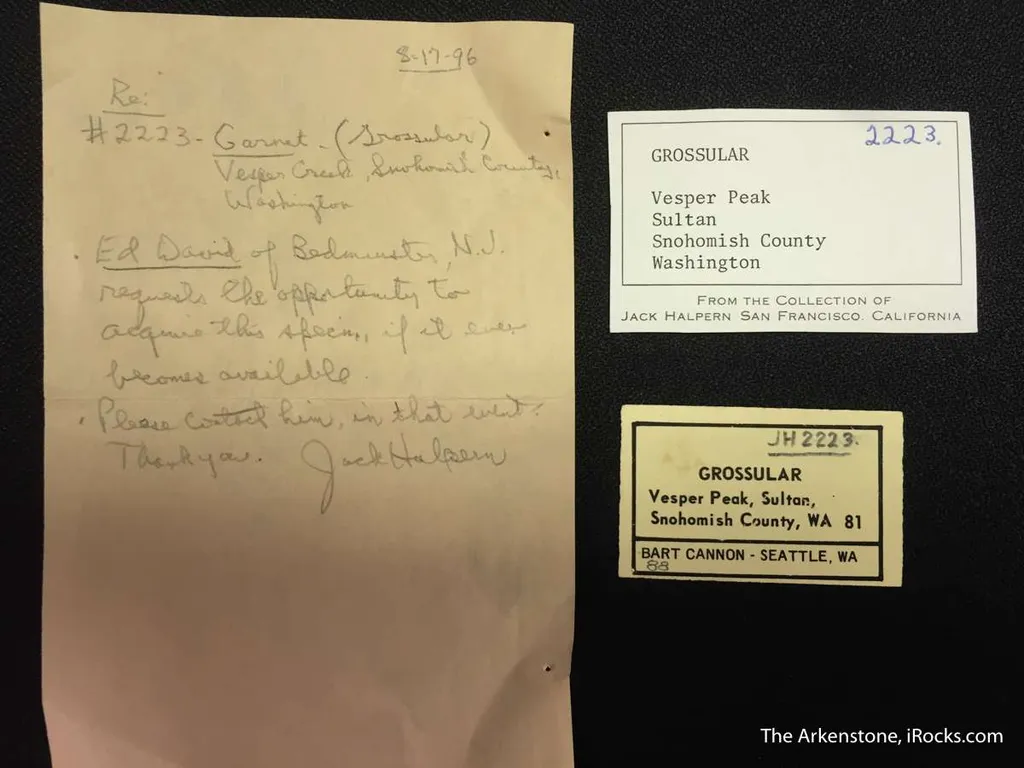 8-17-96
Re:
#2223- Garnet. (Grossular)
Vesper Creek, Snohomish County,
Washington
. Ed David of Bedminster, N.J.
requests the opportunity to
acquire this specim., if it ever
becomes available.
. Please contact him, in that event.
Thank you. Jack Halpern
2223.
GROSSULAR
Vesper Peak
Sultan
Snohomish County
Washington
FROM THE COLLECTION OF
JACK HALPERN SAN FRANCISCO. CALIFORNIA
JH2223.
GROSSULAR
Vesper Peak, Sultan,
Snohomish County, WA 81
BART CANNON - SEATTLE, WA
88
The Arkenstone, iRocks.com